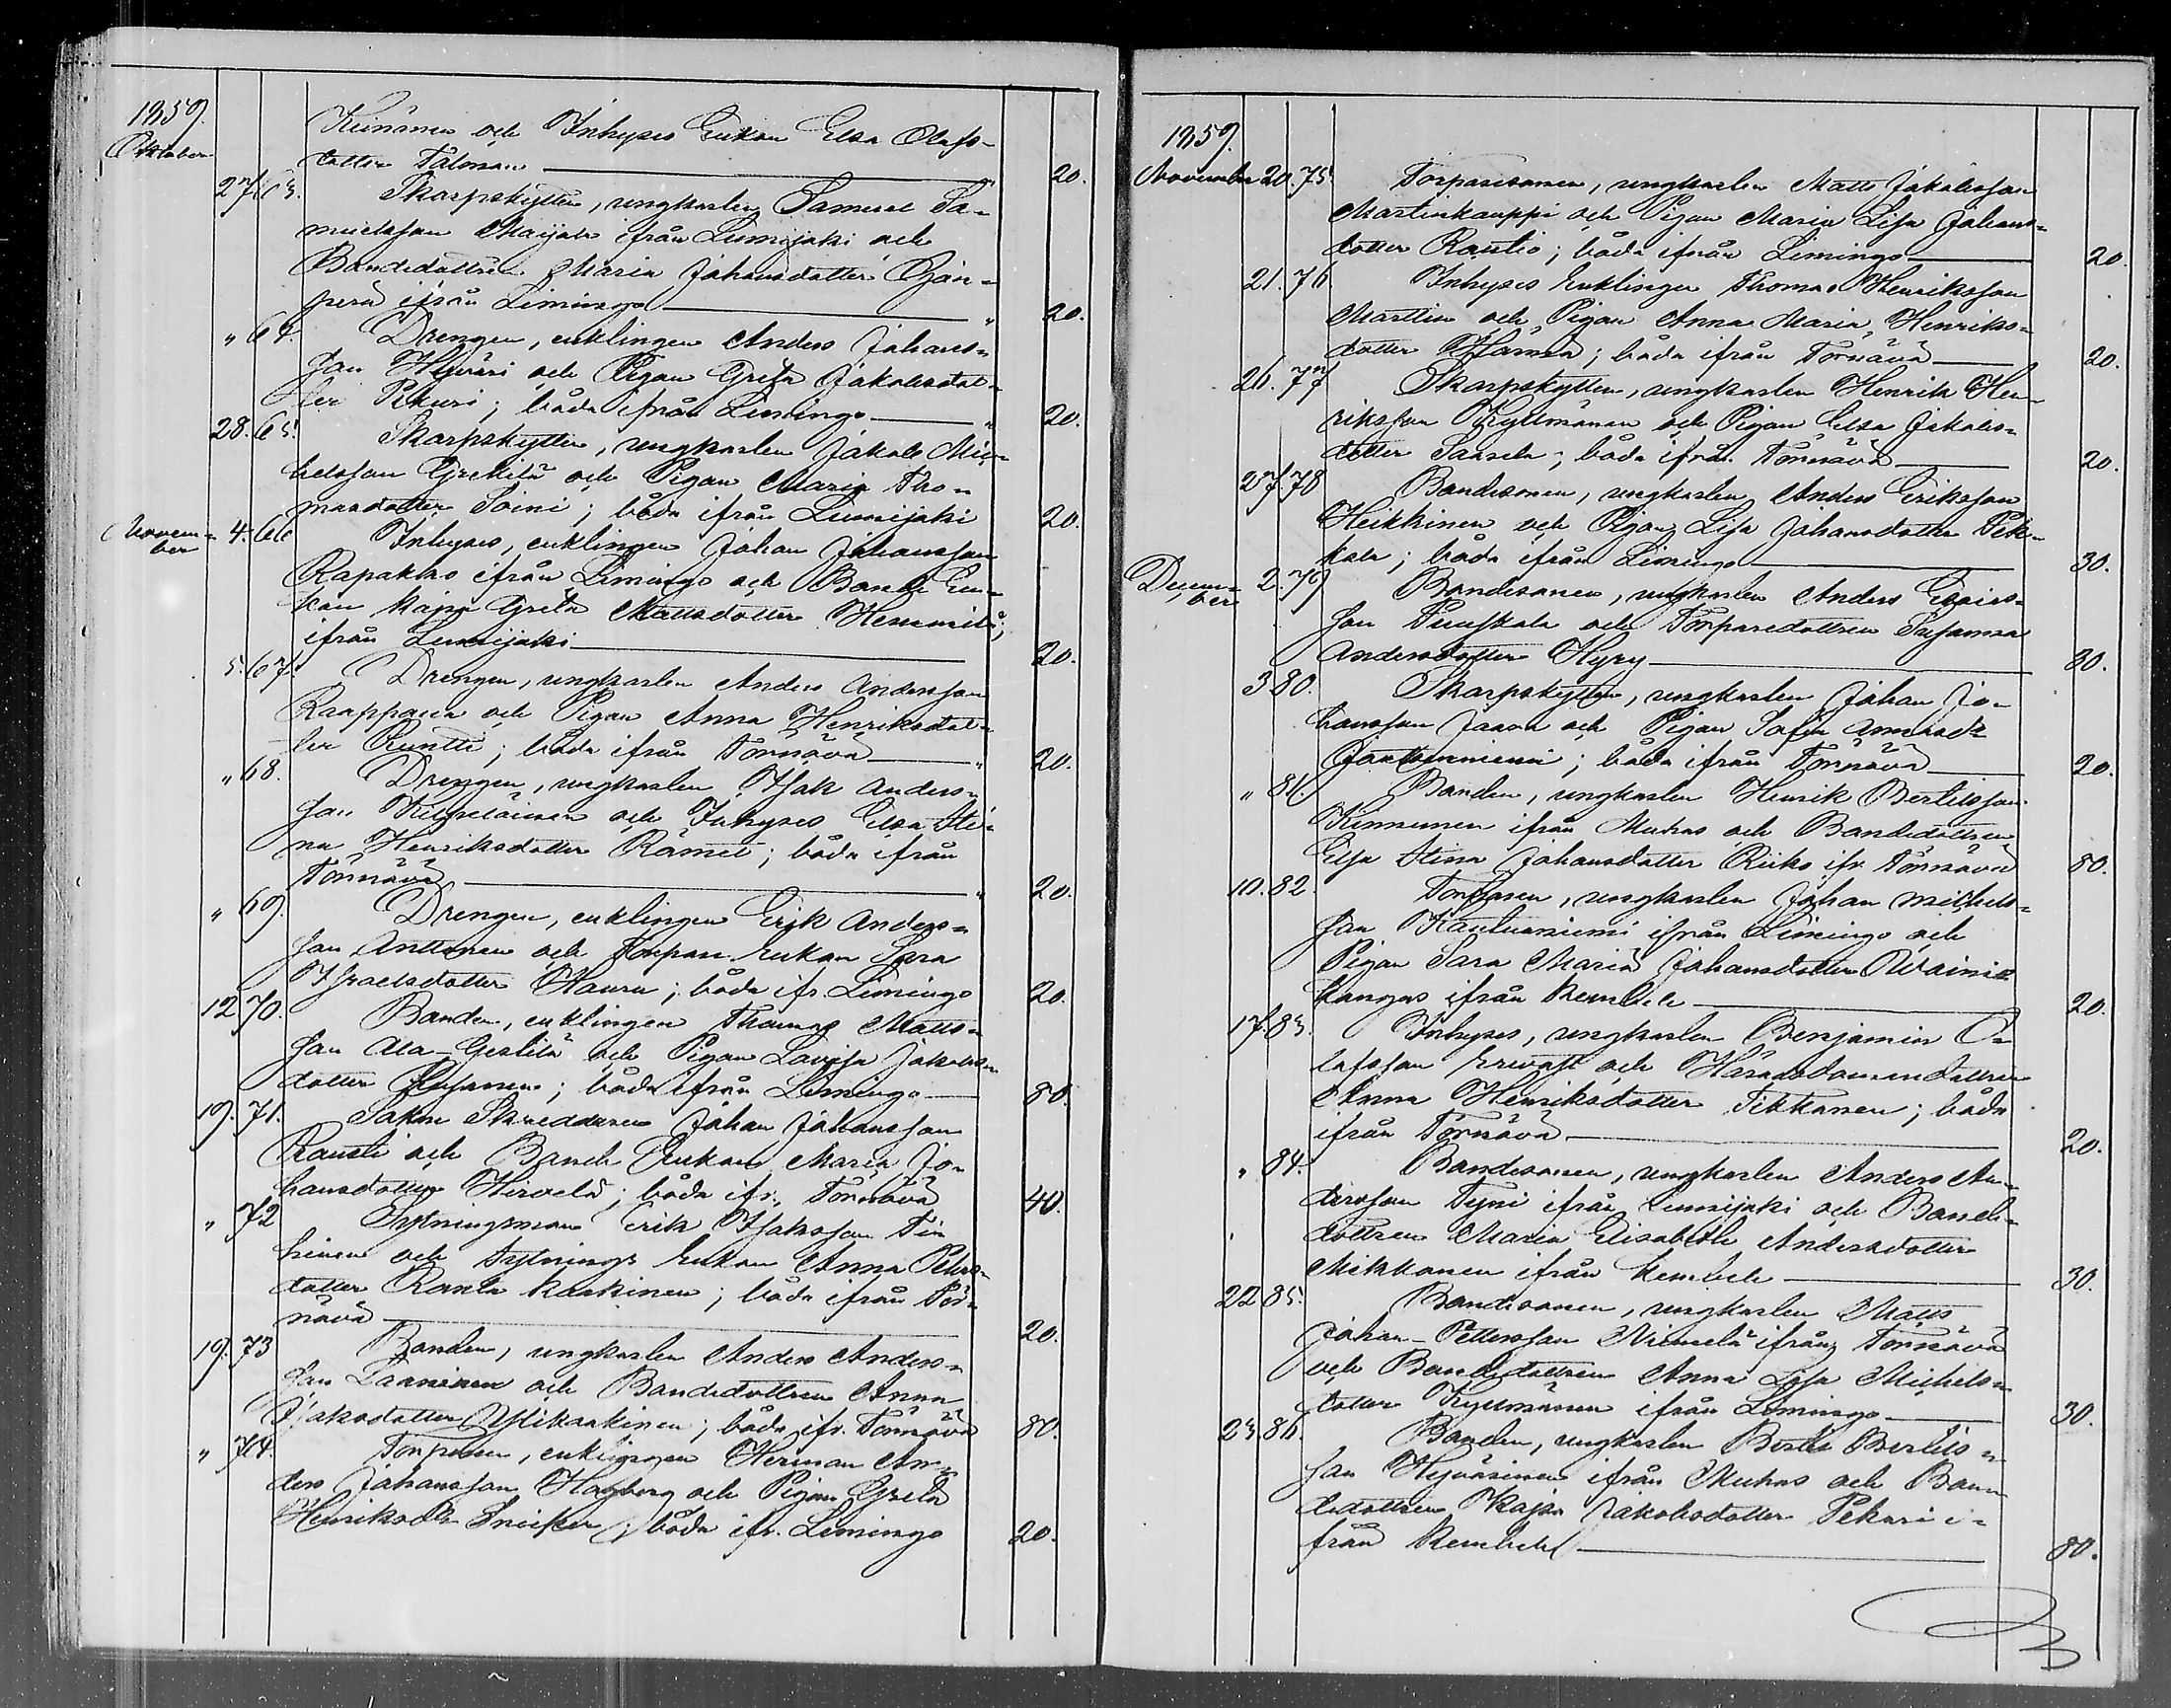 1859.
Oktober
Keinänen och Inhyses Enkan Elsa Olofs-
dotter Tälonen " 20.
27. 63. Skarpskytten, ungkarlen Samuel Sa-
muelsson Maijala ifrån Lumijoki och
Bondedottren Maria Johansdotter Ojan-
perä ifrån Limingo " 20.
" 64. Drengen, enklingen Anders Johans-
son Hyväri och Pigan Greta Jakobsdot-
ter Pekuri; båda ifrån Limingo " 20.
28. 65. Skarpskytten, ungkarlen Jakob Mic-
helsson Grekilä och Pigan Maria Tho-
masdotter Soini; båda ifrån Lumijoki 20.
Novem-
ber
4. 66 Inhyses, enklingen Johan Johansson
Rapakko ifrån Limingo och Bonde En-
kan Kajsa Greta Mattsdotter Hemmilä;
ifrån Lumijoki 20.
5. 67. Drengen, ungkarlen Anders Andersson
Raappana och Pigan Anna Henriksdot-
ter Runtti; båda ifrån Tornävä " 20.
" 68. Drengen, ungkarlen Isak Anders-
son och Inhyses Elsa Sti-
na Henriksdotter Rämet; båda ifrån
Tornävä " 20.
" 69. Drengen, enklingen Erik Anders-
son Anttonen och Torpare Enkan Sara
Israelsdotter Hauru; båda ifr. Limingo 20.
12 70. Bonden, enklingen Thomas Matts-
son Ala-Gestilä och Pigan Lovisa Jakobs-
dotter ; båda ifrån Limingo 80.
19. 71. Sokne Skreddaren Johan Johansson
Rausti och Bonde Enkan Maria Jo-
hansdotter Hirvelä; båda ifr. Tornävä 40.
" 72 Sytningsman Erik Isaksson Tin
hinen och Sytnings Enkan Anna Peters-
dotter Ranta Kaakinen; båda ifrån Tor-
nävä 20.
19. 73 Bonden, ungkarlen Anders Anders-
son Laaninen och Bondedottren Anna
Isaksdotter Ylikaakinen; båda ifr. Tornävä 80.
" 74. Torparen, enklingen Herman An-
ders Johansson Hagberg och Pigan Greta
Henriksdtr Sneiker; båda ifr. Limingo 20.
1859.
November 20. 75. Torparesonen, ungkarlen Matts Jakobsson
Martinkauppi och Pigan Maria Lisa Johans-
dotter Rautio; båda ifrån Limingo 20.
21. 76 Inhyses Enklingen Thomas Henriksson
Marttin och Pigan Anna Maria Henriks-
dotter Hanna; båda ifrån Tornävä 20.
26. 77 Skarpskytten, ungkarlen Henrik Hen-
riksson Kyllmänen och Pigan Elsa Jakobs-
dotter Saarela; båda ifrån Tornävä 20.
27. 78 Bondesonen, ungkarlen Anders Eriksson
Heikkinen och Pigan Lisa Johansdotter Pek-
kala; båda ifrån Limingo 30.
Decem-
ber
2. 79 Bondesonen, ungkarlen Anders Esaias-
son och Torparedottren Susanna
Andersdotter Hyry 30.
3 80. Skarpskytten, ungkarlen Johan Jo-
hansson Jaara och Pigan Sofia Annasdtr
; båda ifrån Tornävä 20.
" 81. Bonden, ungkarlen Henrik Bertilsson
Kinnunen ifrån Muhos och Bondedottren
Elsa Stina Johansdotter Riiko ifr Tornävä 80.
10. 82. Torparen, ungkarlen Johan Michels-
son Kauluaniemi ifrån Limingo och
Pigan Sara Maria Johansdotter Wainio
kangas ifrån Kembele 20.
17. 83. Inhyses, ungkarlen Benjamin O-
lofsson och Häradsdomaredottren
Anna Henriksdotter Tikkanen; båda
ifrån Tornävä 20.
" 84. Bondesonen, ungkarlen Anders An-
dersson Tyni ifrån Lumijoki och Bonde-
dottren Maria Elisabeth Andersdotter
Mikkonen ifrån Kembele 30.
22 85. Bondesonen, ungkarlen Matts
Johan Pettersson Niemelä ifrån Tornävä
och Bondedottren Anna Lisa Michels-
dotter Kyllmänen ifrån Limingo 30.
23. 86. Bonden, ungkarlen Bertil Bertils-
son Hyväsinen ifrån Muhos och Bon-
dedottren Kajsa Jakobsdotter Pekuri i-
från Kembele 80.